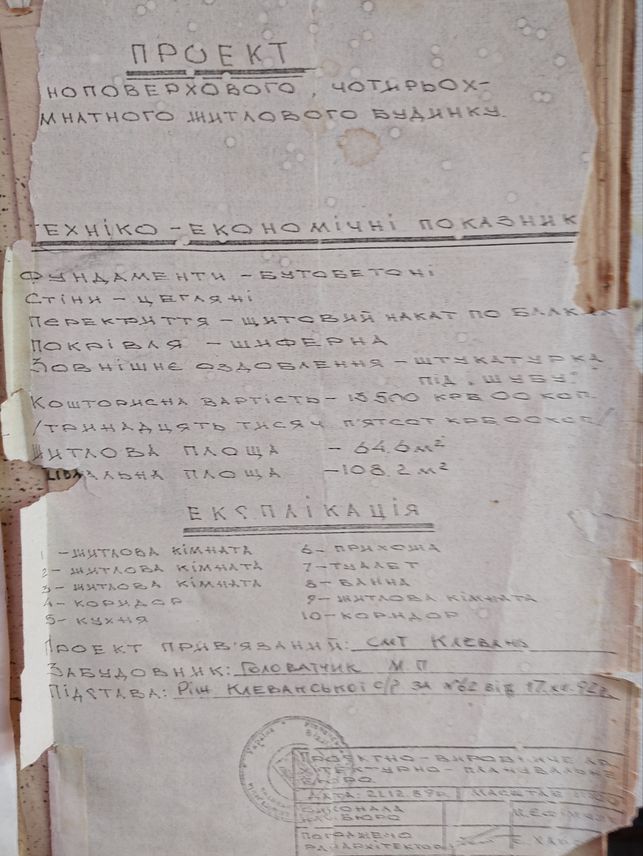 ПРОЕКТ
НОПОВЕРХОВОГО, ЧОТИРЬОХ-
МНАТНОГО ЖИТЛОВОГО БУДИНКУ.
ТЕХНІКО-ЕКОНОМІЧНІ ПОКАЗНИК
ФУНДАМЕНТИ - БУТОБЕТОНІ
СТІНИ - ЦЕГЛЯНІ
ПЕРЕКРИТТЯ - ЩИТОВИЙ НАКАТ ПО
ПОКРІВЛЯ - ШИФЕРНА
ЗОВНІШНЄ ОЗДОБЛЕННЯ - ШТУКАТУРКА
ПІД „ШУБУ"
КОШТОРИСНА ВАРТІСТЬ - 13500 КРБ 00 КОП.
/ТРИНАДЦЯТЬ ТИСЯЧ П'ЯТСОТ КРБ 00 КОП/
ЖИТЛОВА ПЛОЩА - 64.6 м²
АЛЬНА ПЛОЩА - 108.2 м²
ЕКСПЛІКАЦІЯ
1 - ЖИТЛОВА КІМНАТА 6 - ПРИХОЖА
2 - ЖИТЛОВА КІМНАТА 7 - ТУАЛЕТ
3 - ЖИТЛОВА КІМНАТА 8 - ВАННА
4 - КОРИДОР 9 - ЖИТЛОВА КІМНАТА
5 - КУХНЯ 10 - КОРИДОР
ПРОЕКТ ПРИВ'ЯЗАНИЙ: СМТ Клевань
ЗАБУДОВНИК: Головатчик М П
ПІДСТАВА: Ріш Клеванської с/р за №62 від 92р
ПРОЕКТНО-ВИРОБНИЧЕ АР
ХІТЕКТУРНО-ПЛАНУВАЛЬНЕ
БЮРО.
ДАТА: 21.12.89р. МАСШТАБ
ВИКОНАЛА
ПОГОДЖЕНО